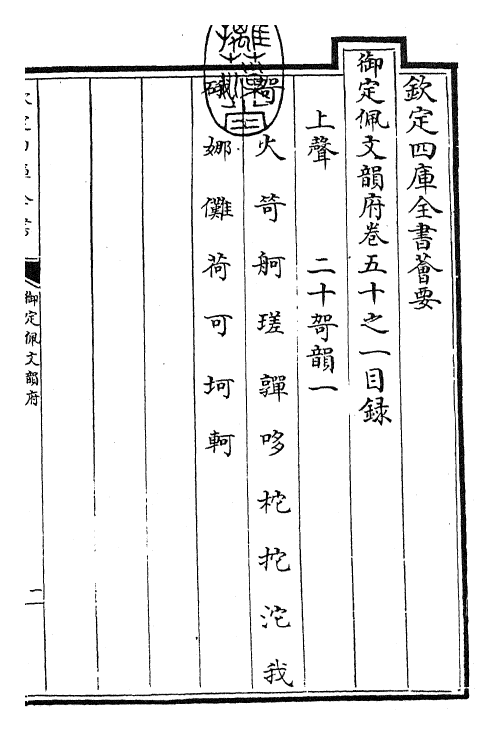 欽定四庫全書薈要
御定佩文韻府卷五十之一目録
上聲 二十哿韻一
哿火笴舸瑳嚲哆柁拕沱我
娜儺荷可坷軻
御定佩文韻府